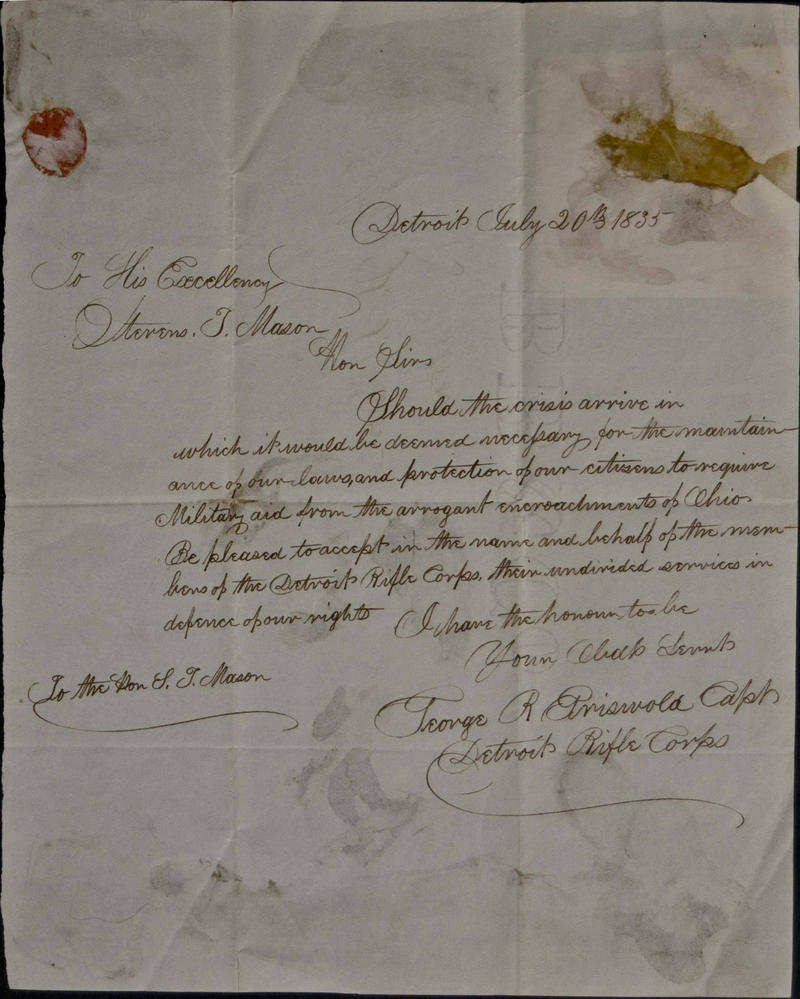 Detroit July 20th 1835
To His Excellency
Stevens. T. Mason
Hon Sir
Should the crisis arrive in
which it would be deemed necessary for the maintain-
ance of our laws, and protection of our citizens to require
Military aid from the arrogant encroachments of Ohio
Be pleased to accept in the name and behalf of the mem-
bers of the Detroit Rifle Corps, their undivided services in
defence of our rights I have the honour to be
Your Obdt Servt
To the Hon S. T. Mason
George R Griswold Capt
Detroit Rifle Corps